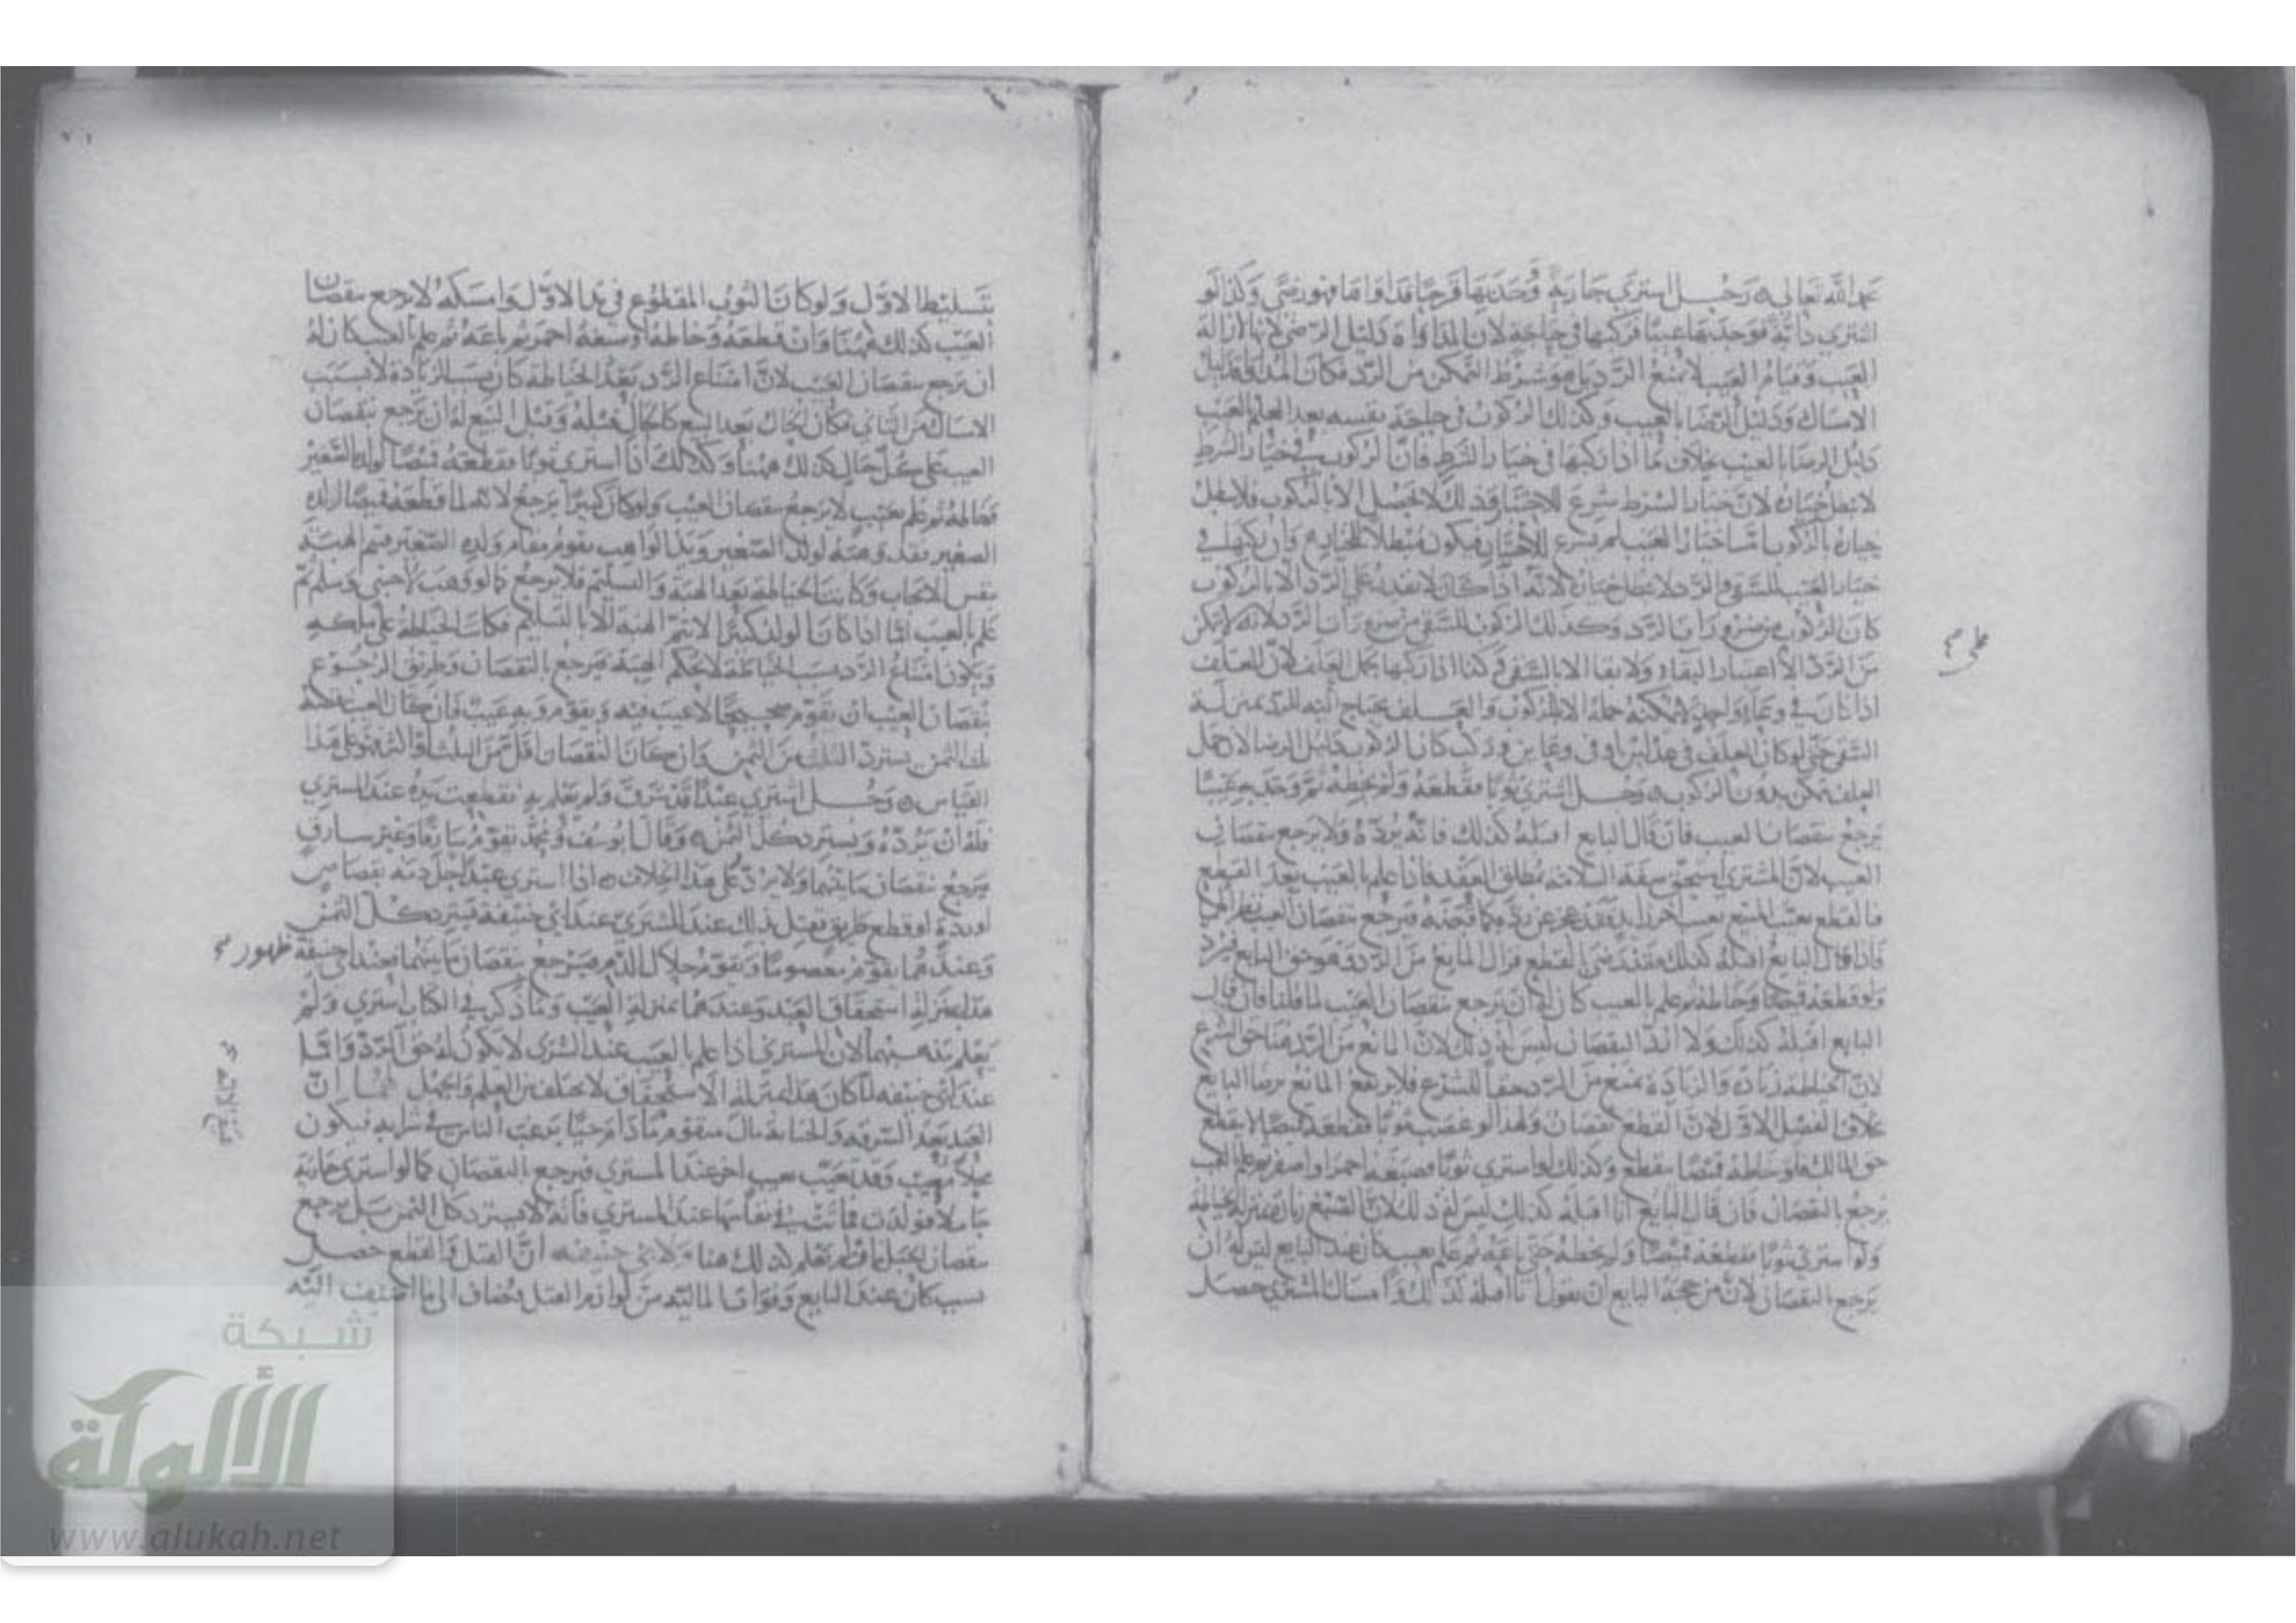 رحمهما الله تعالى ه رجل اشتري جارية فوجد بها قرحا فداواها فهو رضى وكذا لو
اشتري دابة فوجد بها عيبا فركبها في حاجته لان المداواة دليل الرضى لانها ازالة
العيب وقيام العيب لا يمنع الرد بل هو شرط التمكن من الرد فكان المداواة دليل
الامساك ودليل الرضا بالعيب وكذلك الركوب في حاجة نفسه بعد العلم بالعيب
دليل الرضا بالعيب بخلاف ما اذا ركبها في خيار الشرط فان الركوب في خيار الشرط
لا يبطل خياره لان خيار الشرط شرع للاختبار وذلك لا يحصل الا بالركوب فلا يبطل
خياره بالركوب اما خيار العيب لم يشرع للاختبار فيكون مبطلا لخياره وان ركبها في
خيار العيب للسقي او الرد لا يبطل خياره لانه اذا كان لا يقدر على الرد الا بالركوب
كان الركوب من ضرورات الرد وكذلك الركوب للسقي من ضرورات الرد لانه لا يتمكن
من الرد الا باعتبار البقاء ولا بقا الا بالسقي وكذا اذا ركبها يحمل العلف لان العلف
اذا كان في وعاء واحد لا يمكنه حمله الا بالركوب والعلف يحتاج اليه للرد بمنزلة
السقي حتى لو كان العلف في عدلين او في وعاين وركب كان الركوب دليل الرضا لان حمل
العلف يمكن بدون الركوب ه رجل اشتري ثوبا فقطعه ولم يخطه ثم وجد به عيبا
يرجع بنقصان العيب فان قال البايع اقبله كذلك فانه يرده ولا يرجع بنقصان
العيب لان المشتري استحق صفة السلامة بمطلق العقد فاذا علم بالعيب بعد القطع
فالقطع تعيب للمبيع بعيب اخر زايد فقد عجز عن رده كما قبضه فيرجع بنقصان العيب
فاذا قال البايع اقبله كذلك فقد رضي بالقطع فزال المانع من الرد وهو حق البايع فيرد
ولو قطعه قميصا وخاطه ثم علم بالعيب كان له ان يرجع بنقصان العيب لما قلنا فان قال
البايع اقبله كذلك ولا ارد النقصان ليس له ذلك لان المانع من الرد هنا حق الشرع
لان الخياطة زيادة والزيادة تمنع من الرد حقا للشرع فلا يرتفع المانع برضا البايع
بخلاف الفصل الاول لان القطع نقصان ولهذا لو غصب ثوبا فقطعه قميصا لا ينقطع
حق المالك فلو خاطه قميصا ينقطع وكذلك لو اشتري ثوبا فصبغه احمر او اصفر ثم علم بالعيب
يرجع بالنقصان فان قال البايع انا اقبله كذلك ليس له ذلك لان الصبغ زيادة بمنزلة الخياطة
ولو اشتري ثوبا فقطعه قميصا ولم يخطه حتى باعه ثم علم بعيب كان عند البايع ليس له ان
يرجع بالنقصان لان من حجة البايع ان يقول انا اقبله كذلك وامساك المشتري حصل
بتسليط الاول ولو كان الثوب المقطوع في يد الاول وامسكه لا يرجع بنقصان
العيب كذلك ههنا وان قطعه وخاطه او صبغه احمر ثم باعه ثم علم بالعيب كان له
ان يرجع بنقصان العيب لان امتناع الرد بعد الخياطة كان بسبب الزيادة لا بسبب
الامساك من الثاني فكان الحال بعد البيع كالحال قبله وقبل البيع له ان يرجع بنقصان
العيب على كل حال كذلك ههنا وكذلك اذا اشتري ثوبا فقطعه قميصا لولده الصغير
وخاطه ثم علم بعيب لا يرجع بنقصان العيب ولو كان كبيرا يرجع لانه لما قطعه قميصا لولده
الصغير فقد وهبه لولده الصغير ويد الواهب يقوم مقام ولده الصغير فيتم الهبة
بنفس الايجاب وكانت الخياطة بعد الهبة والتسليم فلا يرجع كما لو وهب لاجنبي وسلم ثم
علم بالعيب اما اذا كان الولد كبيرا لا تتم الهبة الا بالتسليم فكانت الخياطة على ملكه
ويكون امتناع الرد بسبب الخياطة لا بحكم الهبة فيرجع بالنقصان وطريق الرجوع
بنقصان العيب ان يقوم صحيحا لا عيب فيه ويقوم وبه عيب فان كان العيب
ثلث الثمن يسترد الثلث من الثمن وان كان النقصان اقل من الثلث او اكثر فهو على هذا
القياس ه رجل اشتري عبدا قد سرق ولم يعلم به فقطعت يده عند المشتري
فله ان يرده ويسترد كل الثمن ه وقال ابو يوسف ومحمد يقوم سارقا وغير سارق
فيرجع بنقصان ما بينهما ولا يرد على هذا الخلاف ه اذا اشتري عبدا حل دمه بقصاص
او ردة او قطع طريق فقتل بذلك عند المشتري عند ابي حنيفة يسترد كل الثمن
وعندهما يقوم معصوما ويقوم حلال الدم فيرجع بنقصان ما بينهما فعند ابي حنيفة
هذا بمنزلة استحقاق العبد وعندهما بمنزلة العيب وما ذكر في الكتاب اشتري ولم
يعلم به مذهبهما لان المشتري اذا علم بالعيب عند الشرى لا يكون له حق الرد واما
عند ابي حنيفة لما كان هذا بمنزلة الاستحقاق لا يختلف بين العلم والجهل لهما ان
العبد بعد السرقة والجناية مال متقوم ما دام حيا يرغب الناس في شرايه فيكون
محلا للبيع وقد تعيب بعيب اخر عند المشتري فيرجع بالنقصان كما لو اشتري جارية
حاملا فولدت فماتت في نفاسها عند المشتري فانه لا يسترد كل الثمن بل يرجع
بنقصان الحبل ان لم يعلم كذلك هنا ه ولابي حنيفة ان القتل والقطع حصل
بسبب كان عند البايع وفوات المالية من لوازم القتل فيضاف الى ما اضيف اليه
ظهور
شبكة
الألوكة
www.alukah.net